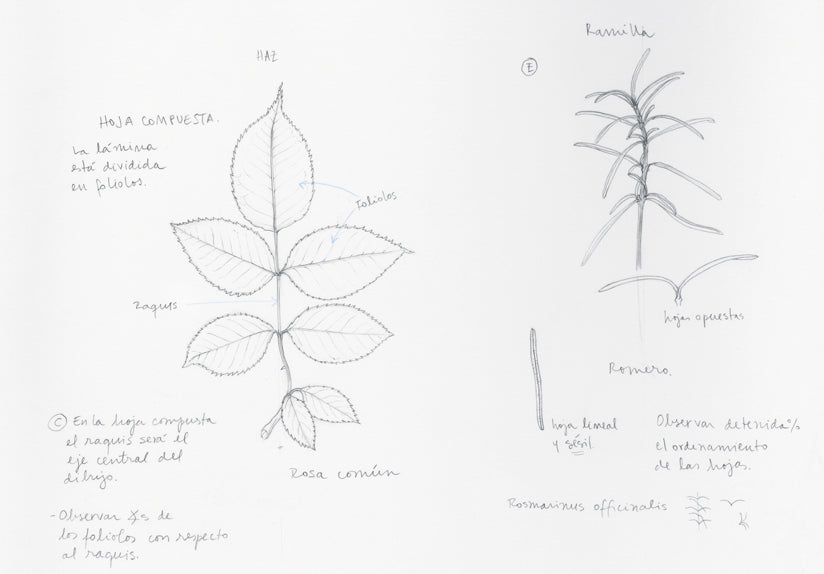 HAZ
HOJA COMPUESTA.
La lámina
está dividida
en foliolos.
Foliolos
raquis
© En la hoja compusta
el raquis será el
eje central del
dibujo.
Rosa común
- Observar ∡s de
los foliolos con respecto
al raquis.
Ramilla
E
hojas opuestas
Romero.
hoja lineal
y sésil
Observar detenida%
el ordenamiento
de las hojas.
Rosmarinus officinalis